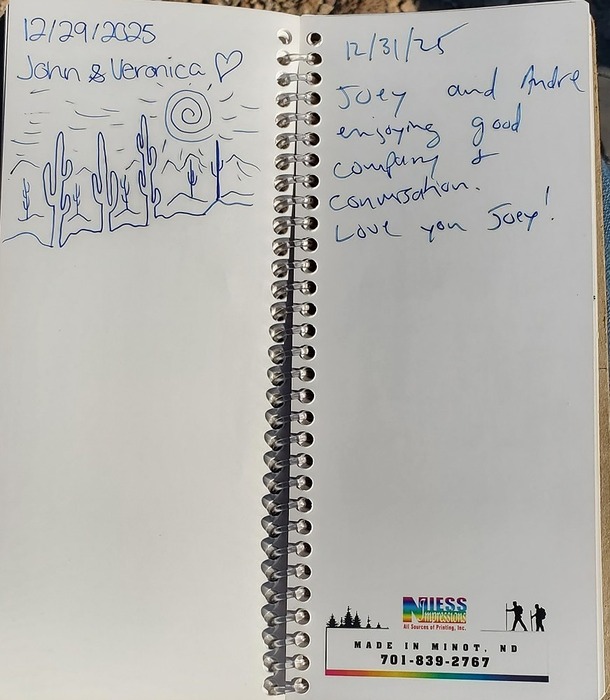 12/29/2025
John & Veronica ♡
12/31/25
Joey and Andre
enjoying good
company &
conversation.
Love you Joey!
NIESS
Impressions
All Sources of Printing, Inc.
MADE IN MINOT, ND
701-839-2767